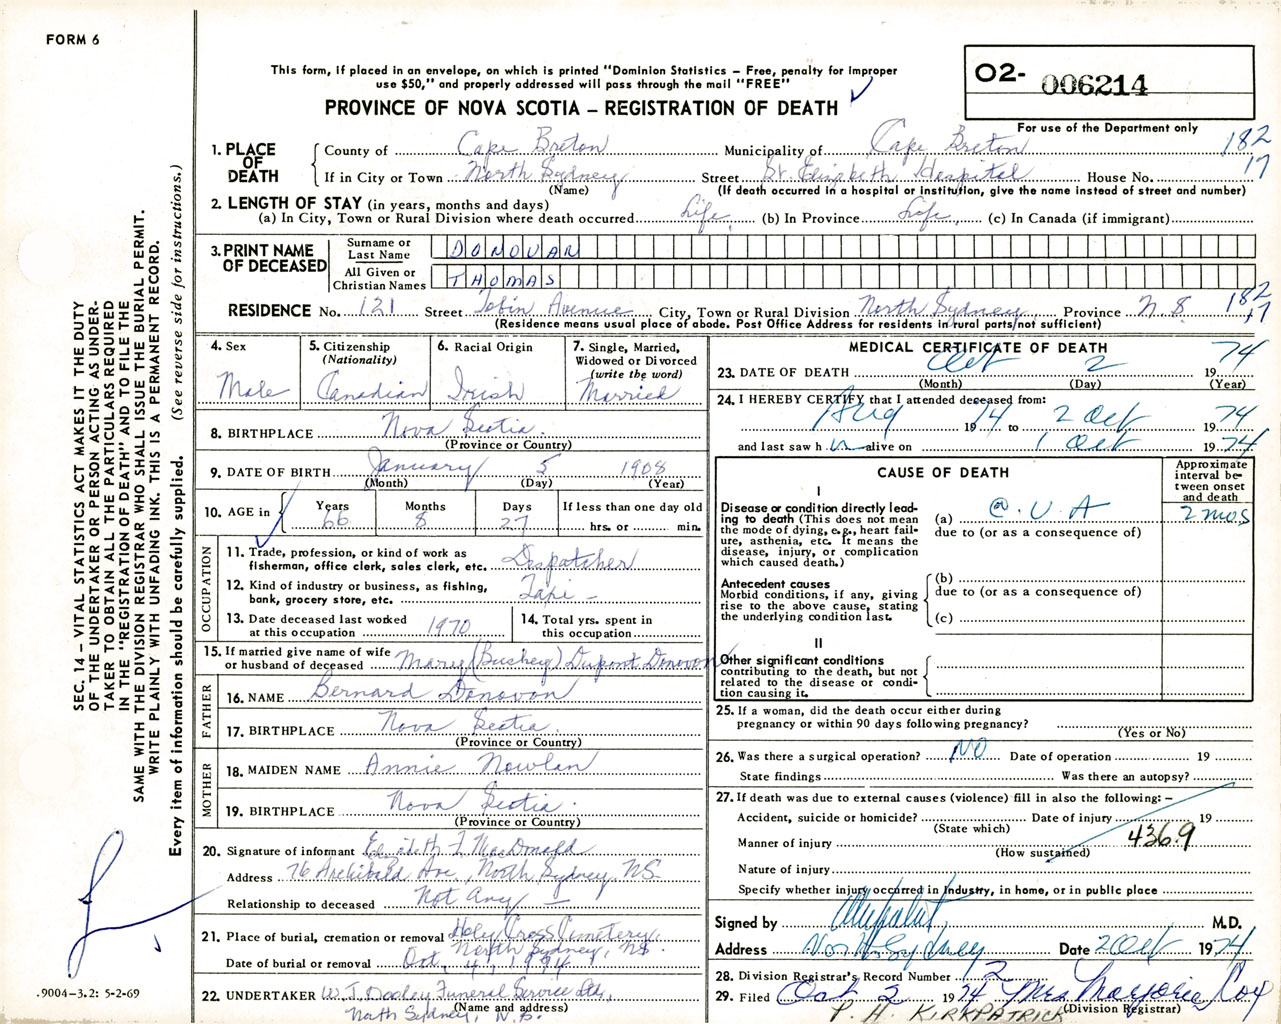 FORM 6
This form, if placed in an envelope, on which is printed "Dominion Statistics – Free, penalty for improper
use $50," and properly addressed will pass through the mail "FREE"
PROVINCE OF NOVA SCOTIA – REGISTRATION OF DEATH
02- 006214
For use of the Department only
1. PLACE OF DEATH
County of Cape Breton Municipality of Cape Breton 182
If in City or Town North Sydney Street St. Elizabeth Hospital House No. 17
(Name) (If death occurred in a hospital or institution, give the name instead of street and number)
2. LENGTH OF STAY (in years, months and days)
(a) In City, Town or Rural Division where death occurred Life (b) In Province Life (c) In Canada (if immigrant)
3. PRINT NAME OF DECEASED
Surname or Last Name DONOVAN
All Given or Christian Names THOMAS
RESIDENCE No. 121 Street Tobin Avenue City, Town or Rural Division North Sydney Province N S 182 17
(Residence means usual place of abode. Post Office Address for residents in rural parts not sufficient)
4. Sex
Male
5. Citizenship
(Nationality)
Canadian
6. Racial Origin
Irish
7. Single, Married,
Widowed or Divorced
(write the word)
Married
8. BIRTHPLACE Nova Scotia
(Province or Country)
9. DATE OF BIRTH January 5 1908
(Month) (Day) (Year)
10. AGE in
Years Months Days If less than one day old
66 8 27 hrs. or min.
OCCUPATION
11. Trade, profession, or kind of work as
fisherman, office clerk, sales clerk, etc. Dispatcher
12. Kind of industry or business, as fishing,
bank, grocery store, etc. Taxi -
13. Date deceased last worked
at this occupation 1970
14. Total yrs. spent in
this occupation
15. If married give name of wife
or husband of deceased Mary (Bushey) Dupont Donovon
FATHER
16. NAME Bernard Donovon
17. BIRTHPLACE Nova Scotia
(Province or Country)
MOTHER
18. MAIDEN NAME Annie Nowlan
19. BIRTHPLACE Nova Scotia
(Province or Country)
20. Signature of informant MacDonald
Address 76 Archibald Ave, North Sydney NS
Relationship to deceased Not Any
21. Place of burial, cremation or removal Holy Cross Cemetery,
North Sydney, NS.
Date of burial or removal Oct, 4, 1974
22. UNDERTAKER W. J. Dooley Funeral Service Ltd,
(Name and address)
North Sydney, N.S.
MEDICAL CERTIFICATE OF DEATH
23. DATE OF DEATH Oct 2 1974
(Month) (Day) (Year)
24. I HEREBY CERTIFY that I attended deceased from:
Aug 1974 to 2 Oct 1974
and last saw h im alive on 1 Oct 1974
CAUSE OF DEATH
Approximate
interval be-
tween onset
and death
I
Disease or condition directly lead-
ing to death (This does not mean
the mode of dying, e.g., heart fail-
ure, asthenia, etc. It means the
disease, injury, or complication
which caused death.)
(a) C.V.A 2 mos
due to (or as a consequence of)
Antecedent causes
Morbid conditions, if any, giving
rise to the above cause, stating
the underlying condition last.
(b)
due to (or as a consequence of)
(c)
II
Other significant conditions
contributing to the death, but not
related to the disease or condi-
tion causing it.
25. If a woman, did the death occur either during
pregnancy or within 90 days following pregnancy?
(Yes or No)
26. Was there a surgical operation? NO Date of operation 19
State findings Was there an autopsy?
27. If death was due to external causes (violence) fill in also the following: –
Accident, suicide or homicide? Date of injury 19
(State which)
Manner of injury 436.9
(How sustained)
Nature of injury
Specify whether injury occurred in Industry, in home, or in public place
Signed by M.D.
Address North Sydney Date 2 Oct 1974
28. Division Registrar's Record Number 2
29. Filed Oct 2 1974 Mrs Marjorie Cox
(Division Registrar)
P. H. KIRKPATRICK
SEC. 14 – VITAL STATISTICS ACT MAKES IT THE DUTY
OF THE UNDERTAKER OR PERSON ACTING AS UNDER-
TAKER TO OBTAIN ALL THE PARTICULARS REQUIRED
IN THE "REGISTRATION OF DEATH" AND TO FILE THE
SAME WITH THE DIVISION REGISTRAR WHO SHALL ISSUE THE BURIAL PERMIT.
WRITE PLAINLY WITH UNFADING INK. THIS IS A PERMANENT RECORD.
Every item of information should be carefully supplied. (See reverse side for instructions.)
.9004-3.2: 5-2-69